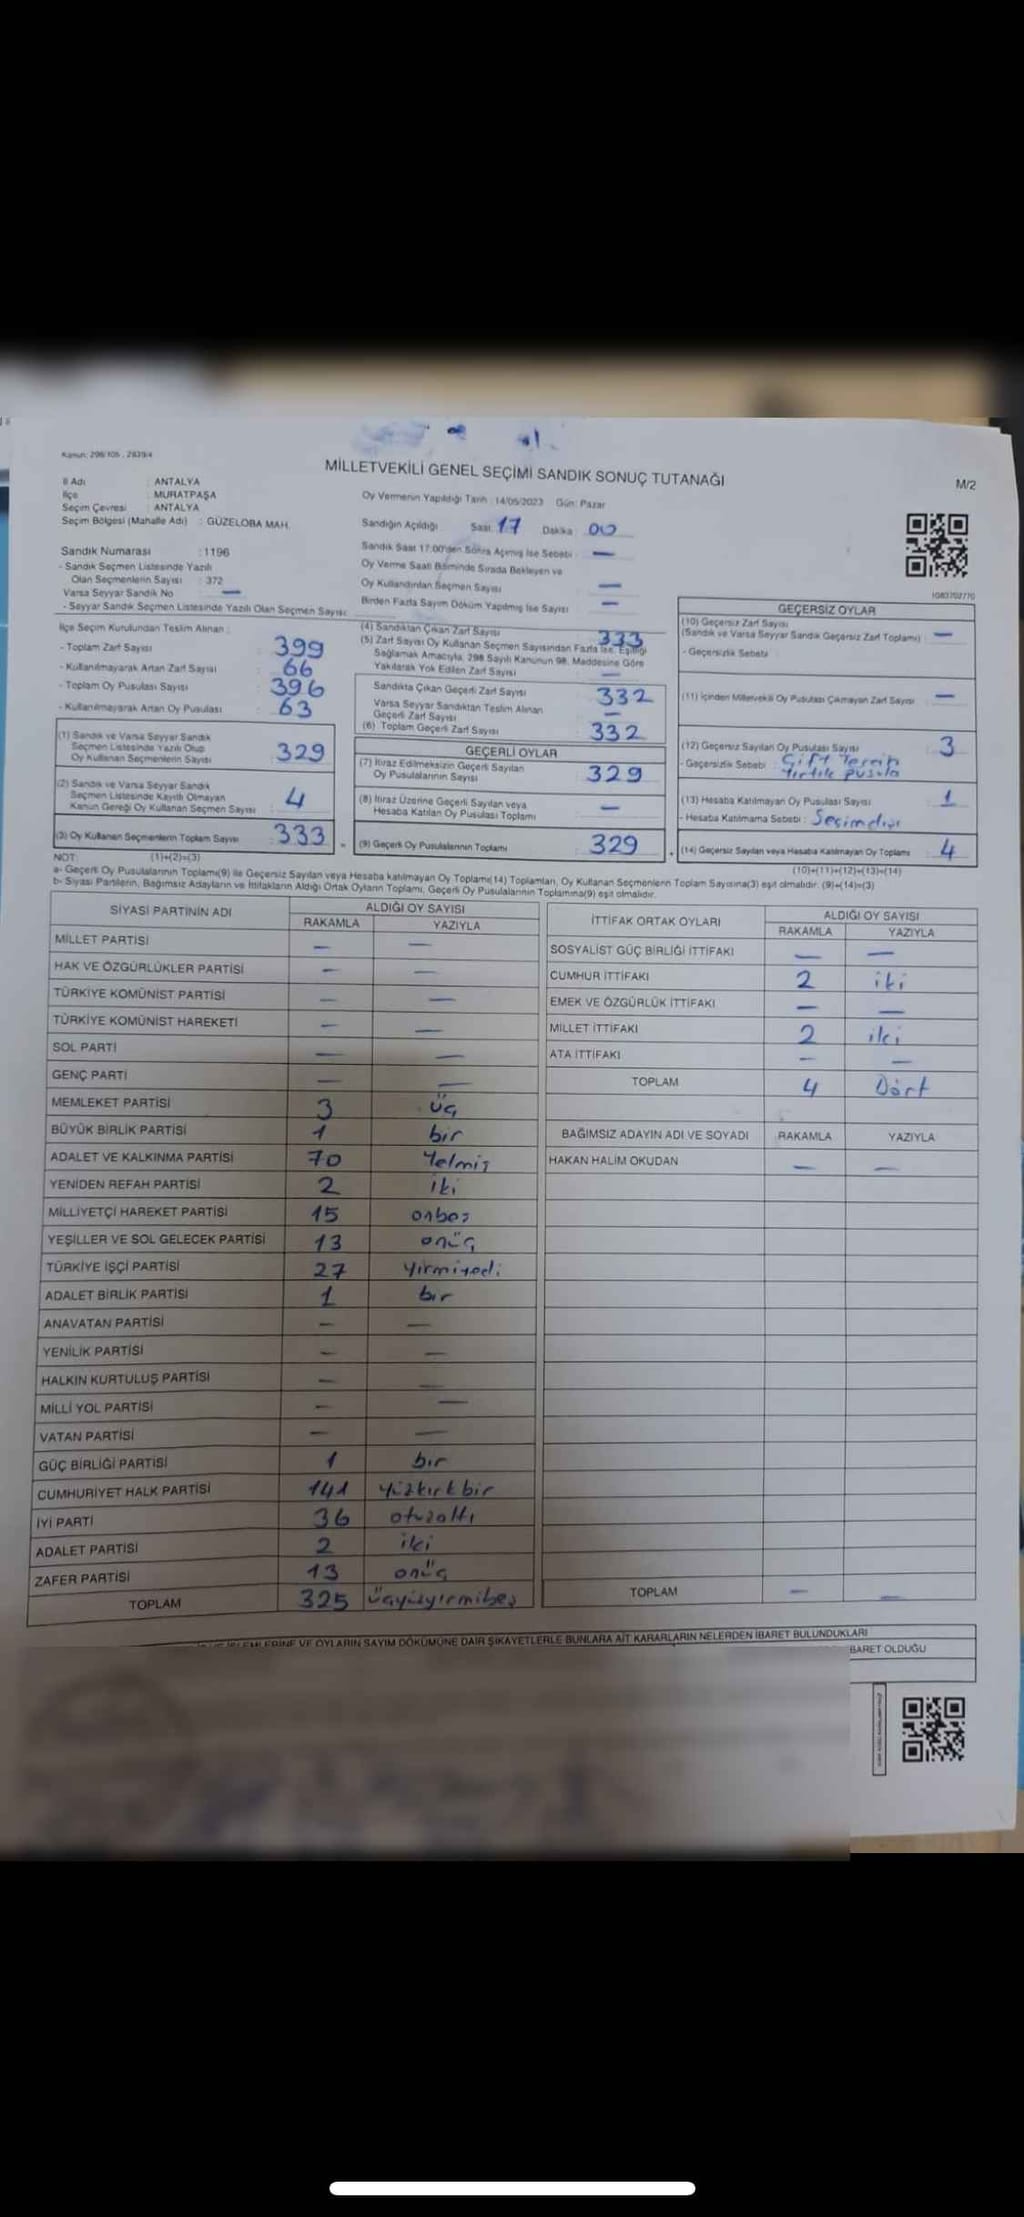 Kanun: 298/105 , 2839/4
MİLLETVEKİLİ GENEL SEÇİMİ SANDIK SONUÇ TUTANAĞI
M/2
İl Adı : ANTALYA
İlçe : MURATPAŞA
Seçim Çevresi : ANTALYA
Seçim Bölgesi (Mahalle Adı) : GÜZELOBA MAH.
Sandık Numarası : 1196
- Sandık Seçmen Listesinde Yazılı
Olan Seçmenlerin Sayısı : 372
Varsa Seyyar Sandık No —
- Seyyar Sandık Seçmen Listesinde Yazılı Olan Seçmen Sayısı:
Oy Vermenin Yapıldığı Tarih : 14/05/2023 Gün: Pazar
Sandığın Açıldığı Saat 17 Dakika : 00
Sandık Saat 17:00'den Sonra Açılmış İse Sebebi : —
Oy Verme Saati Bitiminde Sırada Bekleyen ve
Oy Kullandırılan Seçmen Sayısı : —
Birden Fazla Sayım Döküm Yapılmış İse Sayısı : —
1080702770
İlçe Seçim Kurulundan Teslim Alınan :
- Toplam Zarf Sayısı : 399
- Kullanılmayarak Artan Zarf Sayısı : 66
- Toplam Oy Pusulası Sayısı : 396
- Kullanılmayarak Artan Oy Pusulası : 63
(1) Sandık ve Varsa Seyyar Sandık
Seçmen Listesinde Yazılı Olup
Oy Kullanan Seçmenlerin Sayısı : 329
(2) Sandık ve Varsa Seyyar Sandık
Seçmen Listesinde Kayıtlı Olmayan
Kanun Gereği Oy Kullanan Seçmen Sayısı : 4
(3) Oy Kullanan Seçmenlerin Toplam Sayısı : 333
(4) Sandıktan Çıkan Zarf Sayısı : 333
(5) Zarf Sayısı Oy Kullanan Seçmen Sayısından Fazla İse, Eşitliği
Sağlamak Amacıyla, 298 Sayılı Kanunun 98. Maddesine Göre
Yakılarak Yok Edilen Zarf Sayısı : —
Sandıkta Çıkan Geçerli Zarf Sayısı : 332
Varsa Seyyar Sandıktan Teslim Alınan
Geçerli Zarf Sayısı : —
(6) Toplam Geçerli Zarf Sayısı : 332
GEÇERLİ OYLAR
(7) İtiraz Edilmeksizin Geçerli Sayılan
Oy Pusulalarının Sayısı : 329
(8) İtiraz Üzerine Geçerli Sayılan veya
Hesaba Katılan Oy Pusulası Toplamı : —
(9) Geçerli Oy Pusulalarının Toplamı : 329
GEÇERSİZ OYLAR
(10) Geçersiz Zarf Sayısı
(Sandık ve Varsa Seyyar Sandık Geçersiz Zarf Toplamı) : —
- Geçersizlik Sebebi :
(11) İçinden Milletvekili Oy Pusulası Çıkmayan Zarf Sayısı : —
(12) Geçersiz Sayılan Oy Pusulası Sayısı : 3
- Geçersizlik Sebebi : Çift Tercih
Yırtık pusula
(13) Hesaba Katılmayan Oy Pusulası Sayısı : 1
- Hesaba Katılmama Sebebi :
(14) Geçersiz Sayılan veya Hesaba Katılmayan Oy Toplamı : 4
NOT: (1)+(2)=(3) (10)+(11)+(12)+(13)=(14)
a- Geçerli Oy Pusulalarının Toplamı(9) ile Geçersiz Sayılan veya Hesaba Katılmayan Oy Toplamı(14) Toplamları, Oy Kullanan Seçmenlerin Toplam Sayısına(3) eşit olmalıdır. (9)+(14)=(3)
b- Siyasi Partilerin, Bağımsız Adayların ve İttifakların Aldığı Ortak Oyların Toplamı, Geçerli Oy Pusulalarının Toplamına(9) eşit olmalıdır.
SİYASİ PARTİNİN ADI ALDIĞI OY SAYISI
RAKAMLA YAZIYLA
MİLLET PARTİSİ — —
HAK VE ÖZGÜRLÜKLER PARTİSİ — —
TÜRKİYE KOMÜNİST PARTİSİ — —
TÜRKİYE KOMÜNİST HAREKETİ — —
SOL PARTİ — —
GENÇ PARTİ — —
MEMLEKET PARTİSİ 3 üç
BÜYÜK BİRLİK PARTİSİ 1 bir
ADALET VE KALKINMA PARTİSİ 70 Yetmiş
YENİDEN REFAH PARTİSİ 2 iki
MİLLİYETÇİ HAREKET PARTİSİ 15 onbeş
YEŞİLLER VE SOL GELECEK PARTİSİ 13 onüç
TÜRKİYE İŞÇİ PARTİSİ 27 yirmiyedi
ADALET BİRLİK PARTİSİ 1 bir
ANAVATAN PARTİSİ — —
YENİLİK PARTİSİ — —
HALKIN KURTULUŞ PARTİSİ — —
MİLLİ YOL PARTİSİ — —
VATAN PARTİSİ — —
GÜÇ BİRLİĞİ PARTİSİ 1 bir
CUMHURİYET HALK PARTİSİ 141 yüzkırkbir
İYİ PARTİ 36 otuzaltı
ADALET PARTİSİ 2 iki
ZAFER PARTİSİ 13 onüç
TOPLAM 325 üçyüzyirmibeş
İTTİFAK ORTAK OYLARI ALDIĞI OY SAYISI
RAKAMLA YAZIYLA
SOSYALİST GÜÇ BİRLİĞİ İTTİFAKI — —
CUMHUR İTTİFAKI 2 iki
EMEK VE ÖZGÜRLÜK İTTİFAKI — —
MİLLET İTTİFAKI 2 iki
ATA İTTİFAKI — —
TOPLAM 4 Dört
BAĞIMSIZ ADAYIN ADI VE SOYADI RAKAMLA YAZIYLA
HAKAN HALİM OKUDAN — —
TOPLAM — —
VE OYLARIN SAYIM DÖKÜMÜNE DAİR ŞİKAYETLERLE BUNLARA AİT KARARLARIN NELERDEN İBARET BULUNDUKLARI
İBARET OLDUĞU